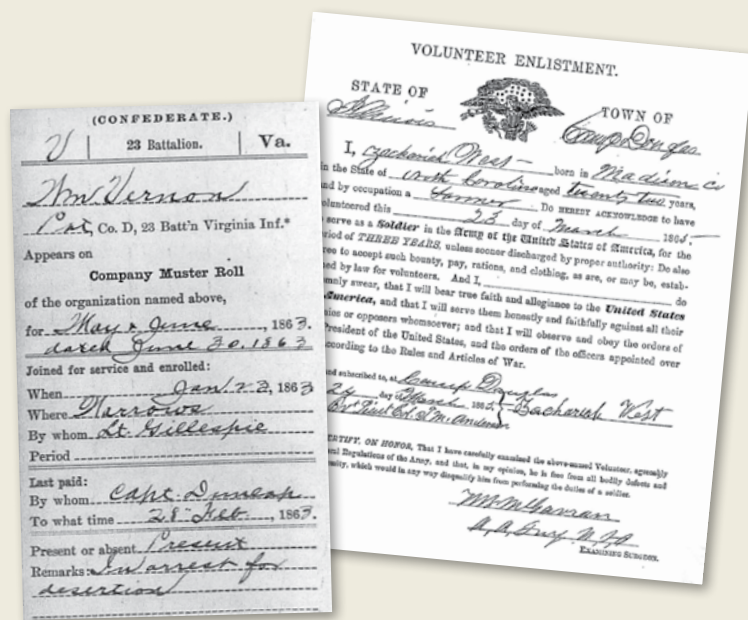 (CONFEDERATE.)
V | 23 Battalion. | Va.
Wm Vernon
Pvt, Co. D, 23 Batt'n Virginia Inf.*
Appears on
Company Muster Roll
of the organization named above,
for May & June, 1863.
dated June 30, 1863
Joined for service and enrolled:
When Jan 23, 1863
Where Narrows
By whom Lt. Gillespie
Period
Last paid:
By whom Capt. Duncan
To what time 28 Feb, 1863.
Present or absent Present
Remarks: In arrest for
desertion
VOLUNTEER ENLISTMENT.
STATE OF TOWN OF
Illinois Camp Douglas
I, Zachariah West born in Madison Co
in the State of North Carolina aged twenty two years,
and by occupation a Farmer Do HEREBY ACKNOWLEDGE to have
volunteered this 23 day of March 1865,
serve as a Soldier in the Army of the United States of America, for the
period of THREE YEARS, unless sooner discharged by proper authority: Do also
agree to accept such bounty, pay, rations, and clothing, as are, or may be, estab-
ed by law for volunteers. And I, do
mnly swear, that I will bear true faith and allegiance to the United States
America, and that I will serve them honestly and faithfully against all their
enemies or opposers whomsoever; and that I will observe and obey the orders of
President of the United States, and the orders of the officers appointed over
according to the Rules and Articles of War.
and subscribed to, at Camp Douglas
24 day of March 1865 Zachariah West
Bvt Lieut Col.
CERTIFY, ON HONOR, That I have carefully examined the above-named Volunteer, agreeably
ral Regulations of the Army, and that, in my opinion, he is free from all bodily defects and
mity, which would in any way disqualify him from performing the duties of a soldier.
EXAMINING SURGEON.